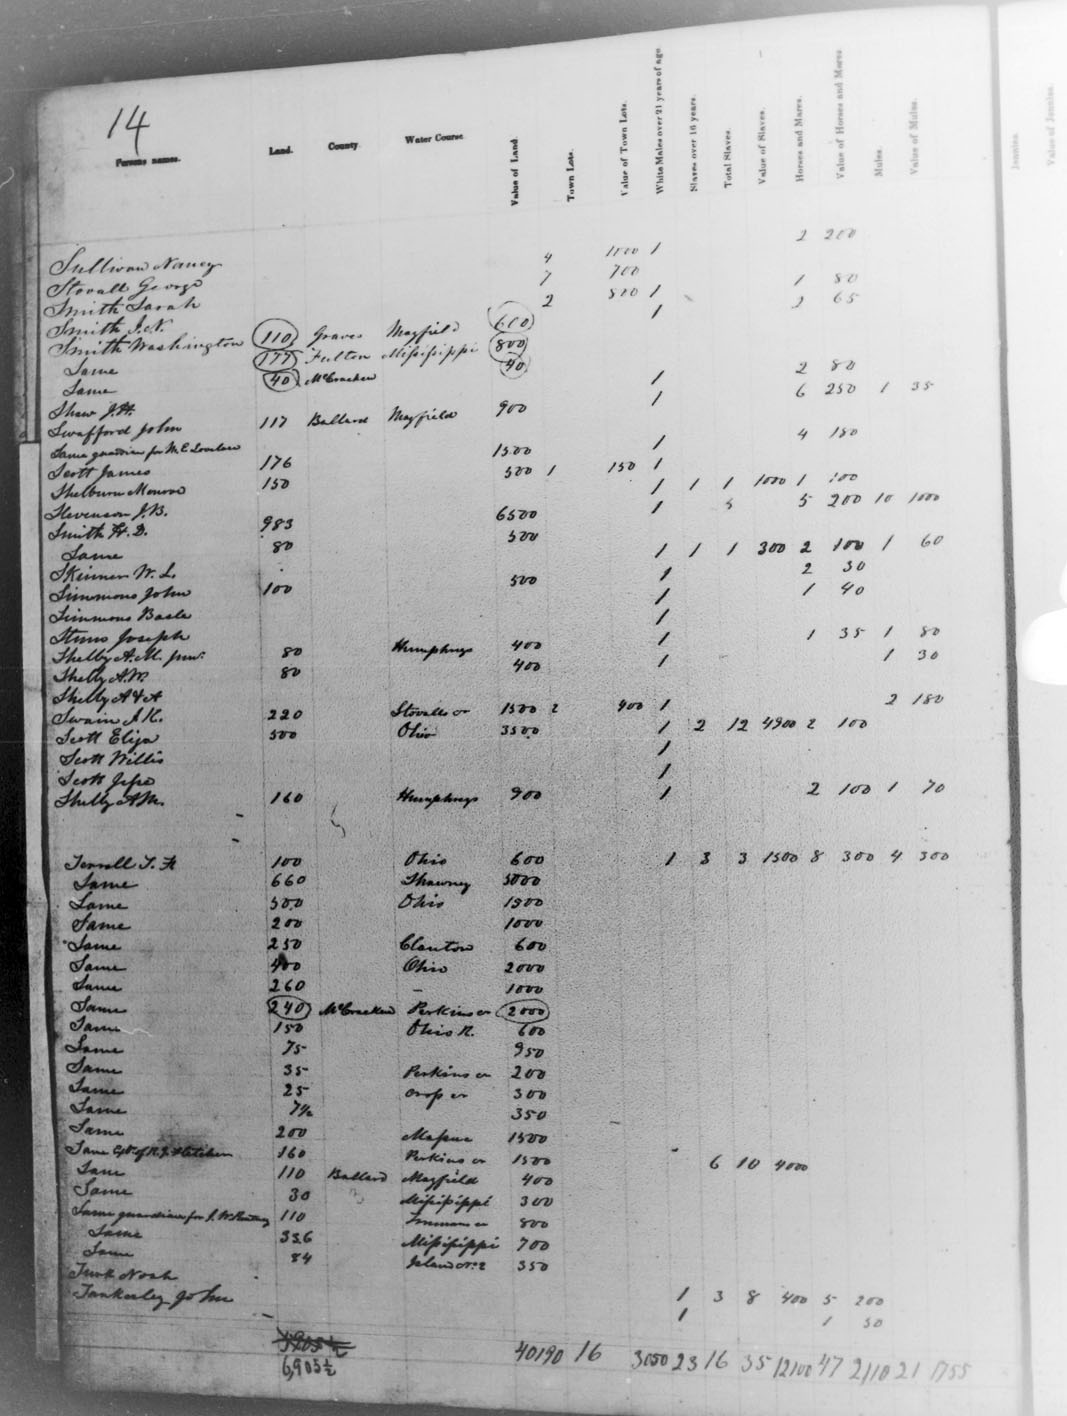 14
Persons names. Land. County Water Course Value of Land. Town Lots. Value of Town Lots. White Males over 21 years of age. Slaves over 16 years. Total Slaves. Value of Slaves. Horses and Mares. Value of Horses and Mares Mules. Value of Mules. Jennies. Value of Jennies.
Sullivan Nancy 4 1000 1 2 200
Stovall George 7 700
Smith Sarah 2 800 1 1 80
Smith J.N. 1 65
Smith Washington 110 Graves Mayfield 600
Same 177 Fulton Mississippi 800
Same 40 McCracken 40
Shaw J.H. 1 2 80
Swafford John 117 Ballard Mayfield 900 1 6 250 1 35
Same guardian for M.E. Lovelace 1500
Scott James 176 500 1 150 1 4 150
Shelburn Monroe 150 1 1 1 1000 1 100
Stevenson J.B. 6500 1 5 200 10 1000
Smith H.D. 983 500
Same 80 1 1 1 300 2 100 1 60
Skinner W.L. 1 2 30
Simmons John 100 500 1 1 40
Simmons Basle 1
Stims Joseph 1 1 35 1 80
Shelby A.M. junr. 80 Humphreys 400 1 1 30
Shelby A.W. 80 400
Shelby A & A 2 180
Swain J.K. 220 Stovalls cr 1500 2 400 1
Scott Eliza 500 Ohio 3500 1 2 12 4900 2 100
Scott Willis 1
Scott Jesse 1
Shelby A.M. 160 Humphreys 900 1 2 100 1 70
Terrell T.H 100 Ohio 600 1 3 3 1500 8 300 4 300
Same 660 Shawney 5000
Same 500 Ohio 1500
Same 200 1000
Same 250 Clanton 600
Same 400 Ohio 2000
Same 260 – 1000
Same 240 McCracken Perkins cr 2000
Same 150 Ohio R. 600
Same 75 950
Same 35 Perkins cr 200
Same 25 cr 300
Same 7½ 350
Same 200 Massac 1500
Same of 160 Perkins cr 1500 6 10 4000
Same 110 Ballard Mayfield 400
Same 30 Mississippi 300
Same guardian for 110 cr 800
Same 336 Mississippi 700
Same 84 Island No 2 350
Turk Noah 1 3 8 400 5 200
Tankersley John 1 1 50
6,905½ 40190 16 3050 23 16 35 12100 47 2110 21 1755